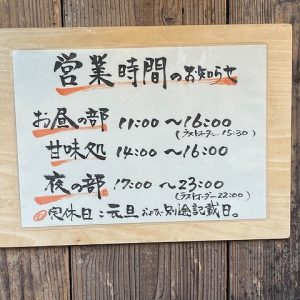 営業時間のお知らせ
お昼の部 11:00〜16:00
(ラストオーダー 15:30)
甘味処 14:00〜16:00
夜の部 17:00〜23:00
(ラストオーダー 22:00)
◎定休日:元旦および別途記載日。